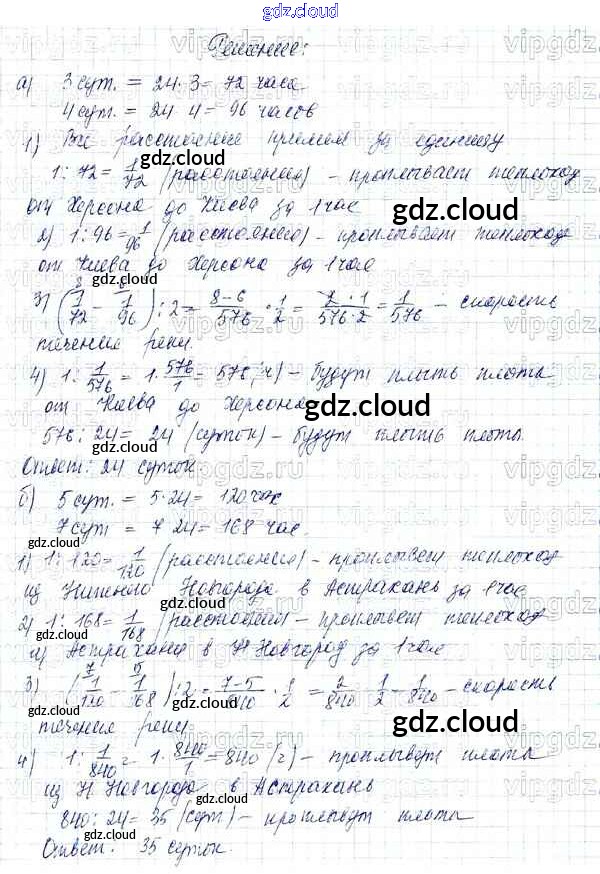 gdz.cloud
Решение:
а) 3 сут. = 24 · 3 = 72 часа
4 сут. = 24 · 4 = 96 часов
1) Все расстояние примем за единицу
1 : 72 = 1/72 (расстояния) – проплывает теплоход
от Херсона до Киева за 1 час
2) 1 : 96 = 1/96 (расстояния) – проплывает теплоход
от Киева до Херсона за 1 час
3) (1/72 - 1/96) : 2 = 8-6/576 · 1/2 = 2·1/576·2 = 1/576 – скорость
течения реки.
4) 1 : 1/576 = 1 · 576/1 = 576 (ч) – будут плыть плоты
от Киева до Херсона
576 : 24 = 24 (суток) – будут плыть плоты
Ответ: 24 суток
б) 5 сут. = 5 · 24 = 120 час
7 сут = 7 24 = 168 час.
1) 1 : 120 = 1/120 (расстояния) – проплывет теплоход
из Нижнего Новгорода в Астрахань за 1 час
2) 1 : 168 = 1/168 (расстояния) – проплывет теплоход
из Астрахани в Н Новгород за 1 час
3) (1/120 - 1/168) : 2 = 7-5/840 · 1/2 = 2/840 · 1/2 = 1/840 – скорость
течения реки.
4) 1 : 1/840 = 1 · 840/1 = 840 (ч) – проплывут плоты
из Н Новгорода в Астрахань
840 : 24 = 35 (сут) – проплывут плоты
Ответ: 35 суток.